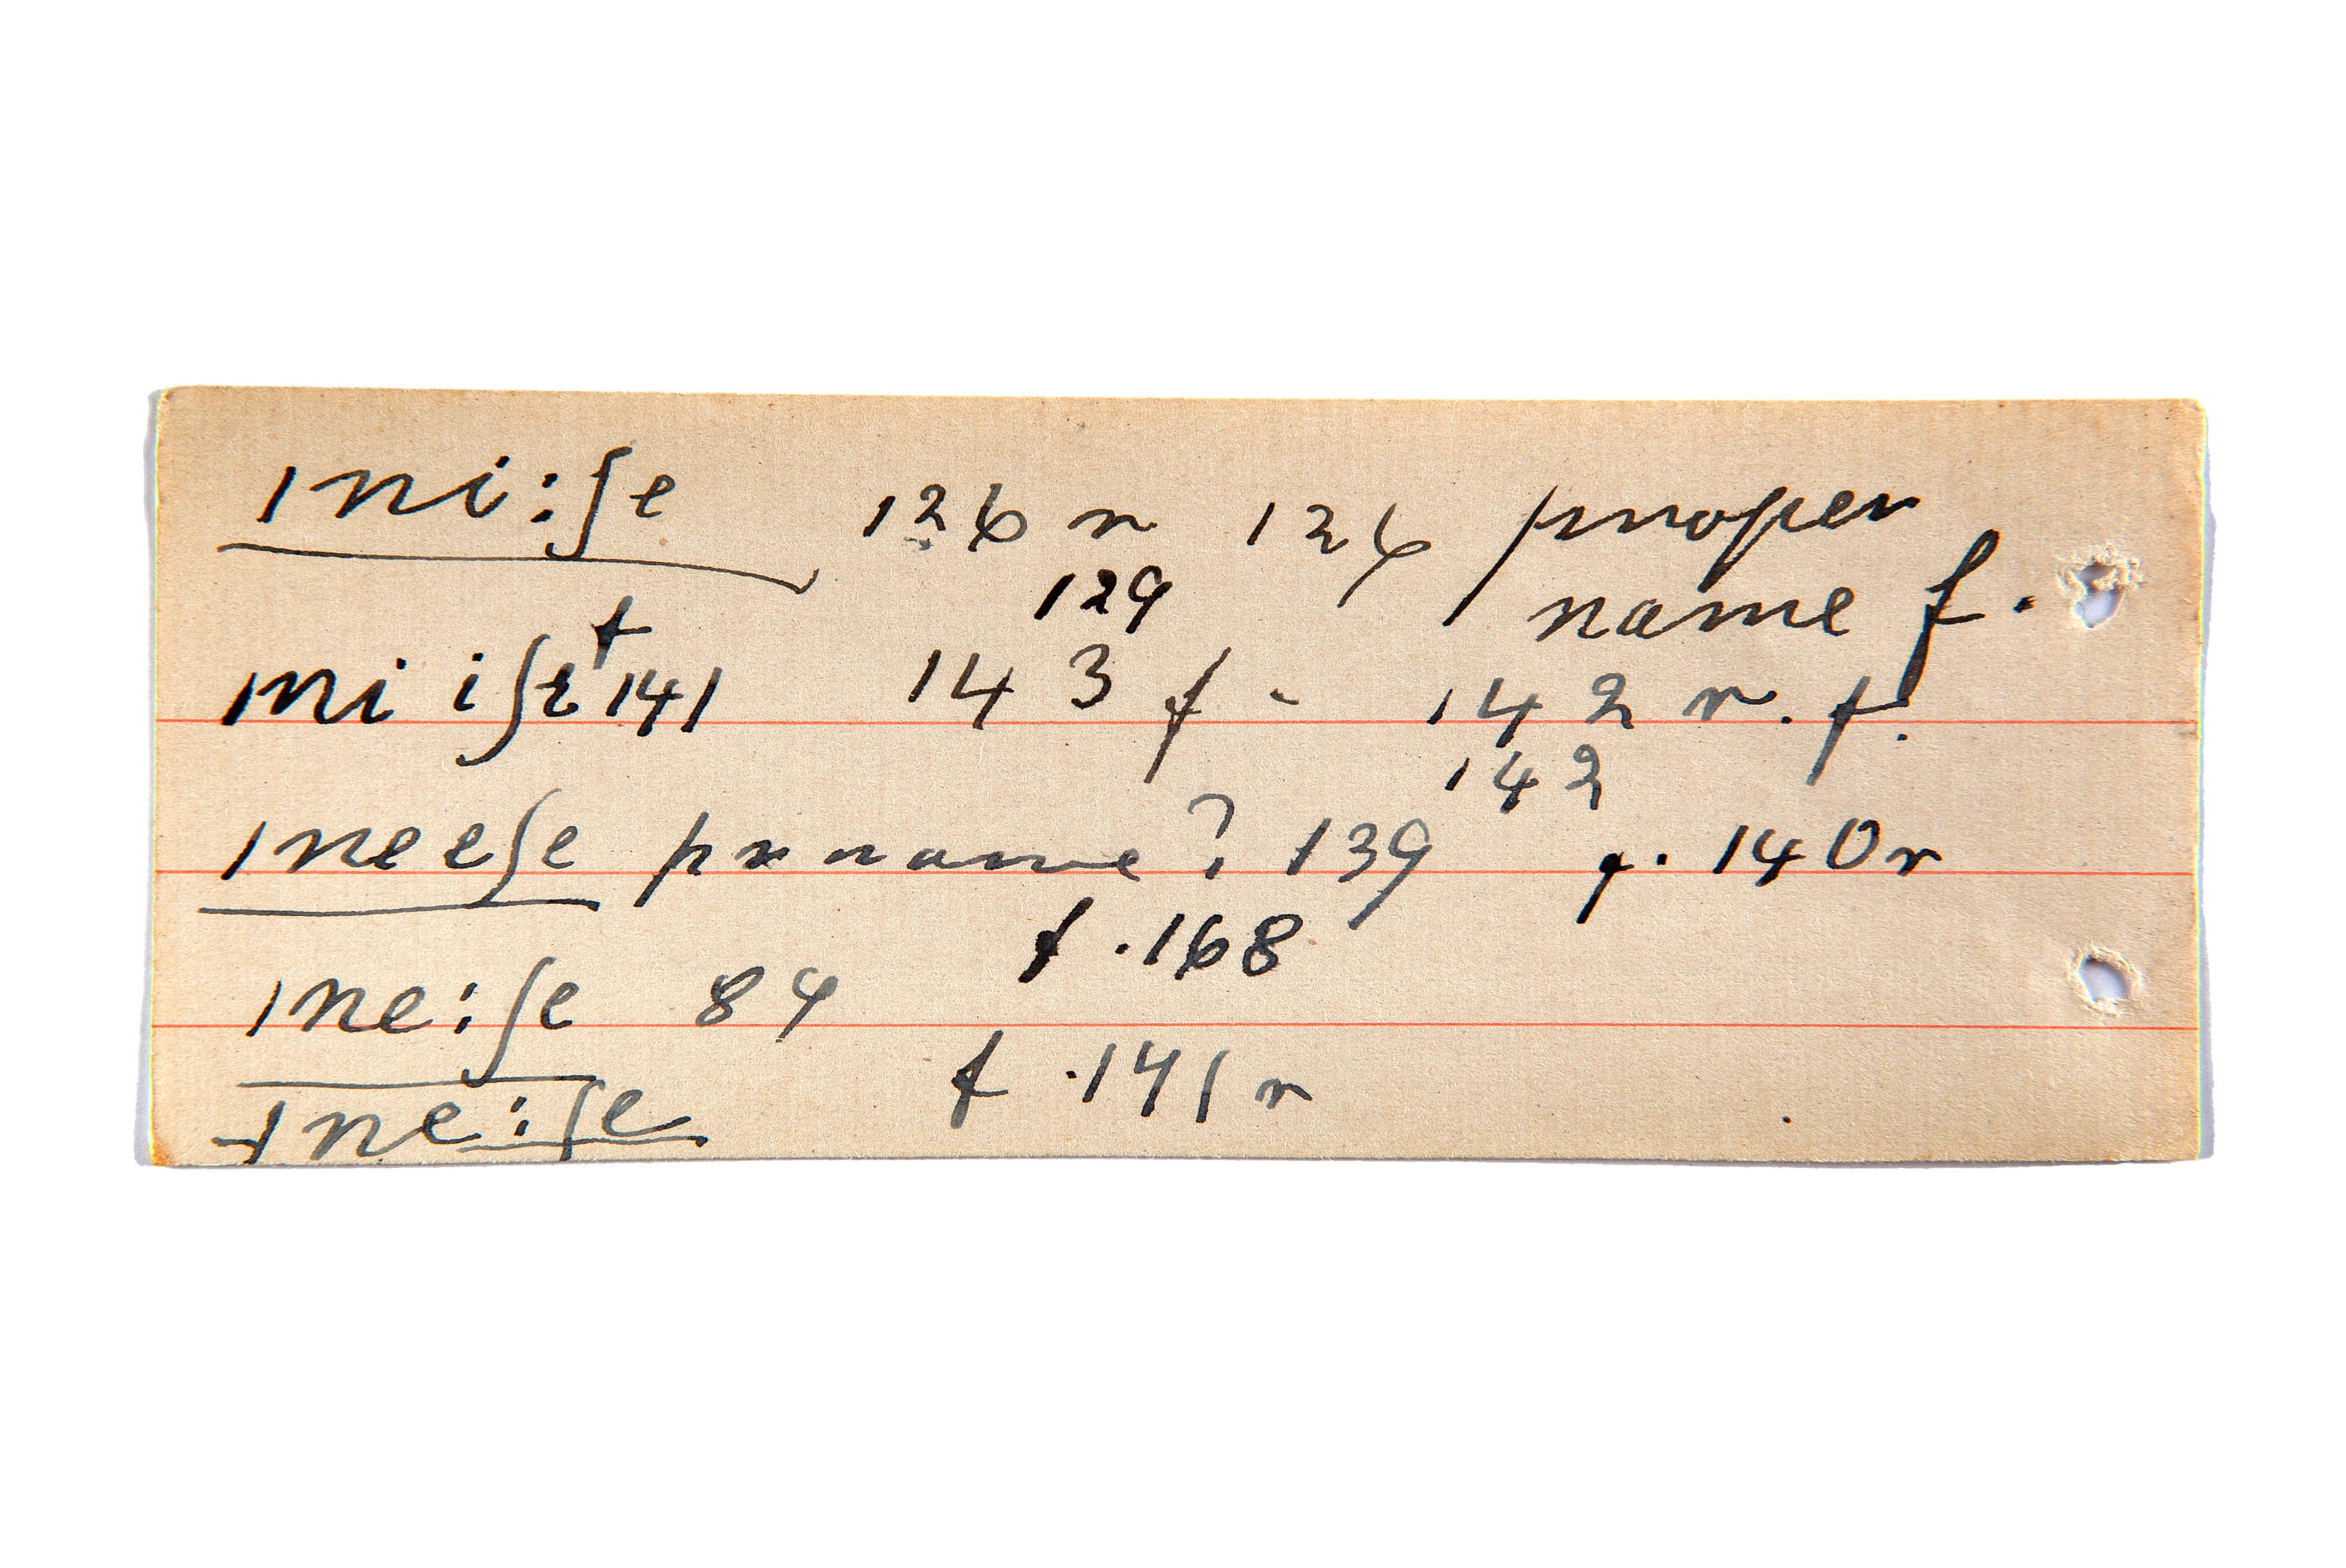 mi:ʃe 126 r 126 proper
129 name f.
mi iʃe † 141 143 f - 142 r. f.
142
meeʃe pr name ? 139 f. 140r
f. 168
me:ʃe 84
f. 141 r
me:ʃe